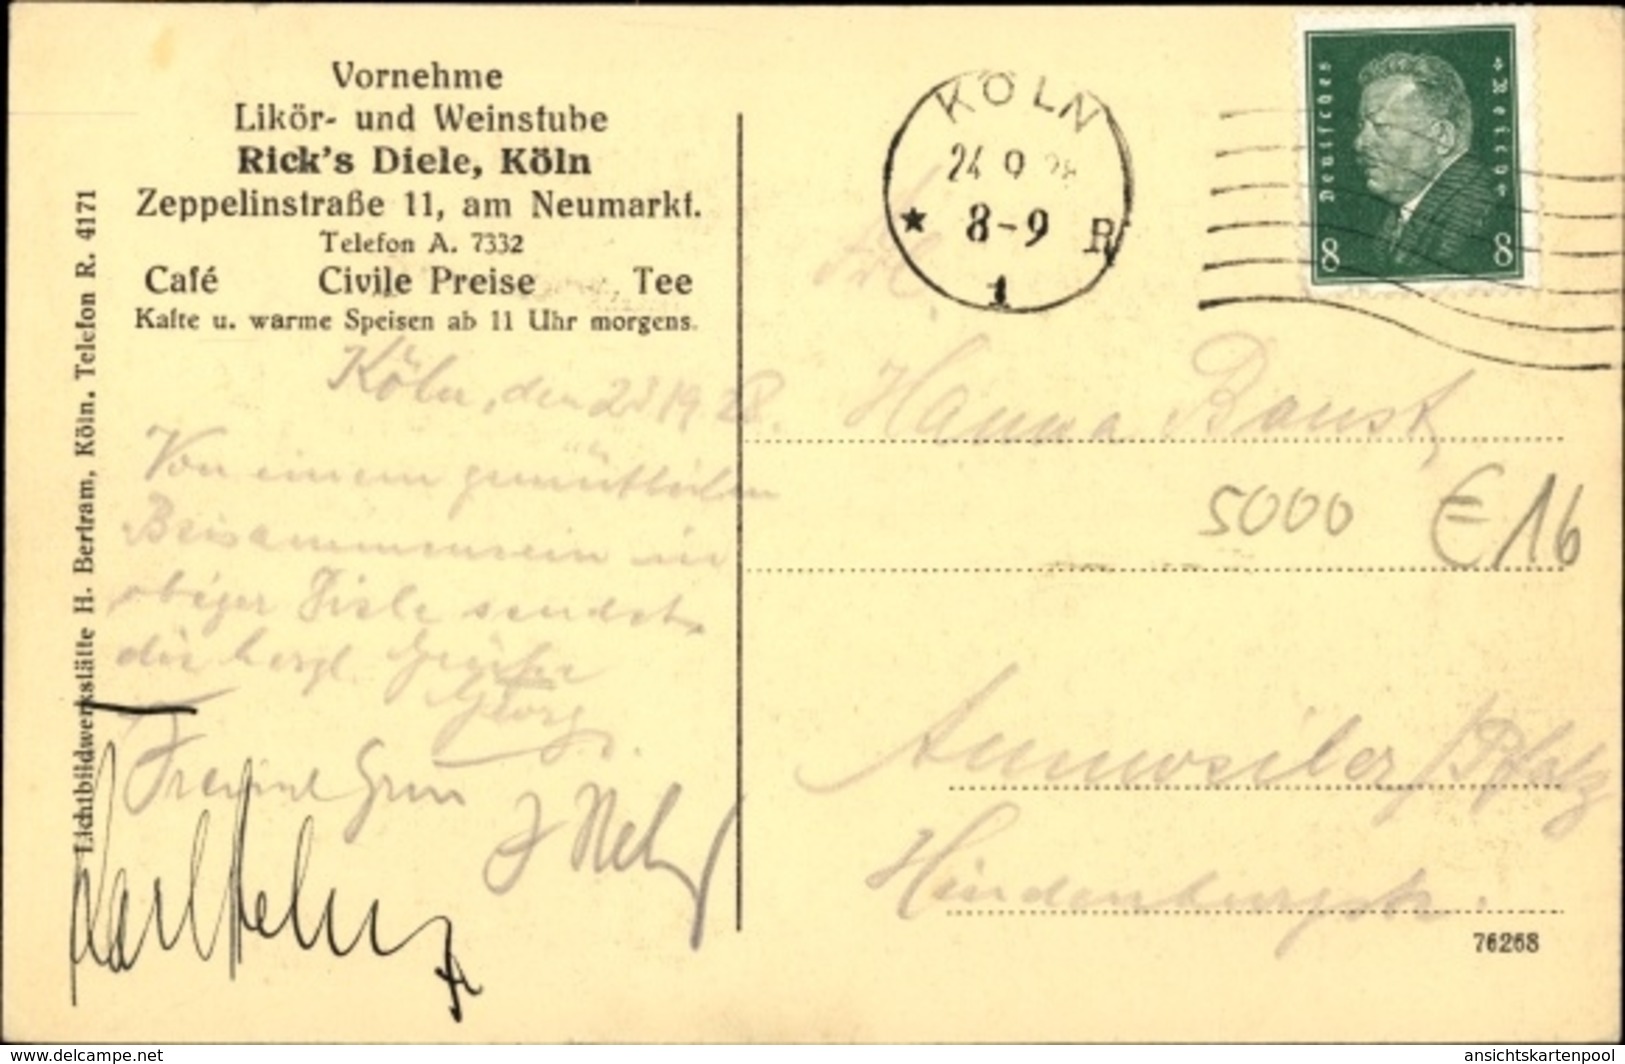 Vornehme
Likör- und Weinstube
Rick's Diele, Köln
Zeppelinstraße 11, am Neumarkt.
Telefon A. 7332
Café Civile Preise Tee
Kalte u. warme Speisen ab 11 Uhr morgens.
Lichtbildwerkstätte H. Bertram, Köln. Telefon R. 4171
Köln, den
Von einem gemütlichen
Beisammensein in
obiger Diele sendet
dir herzl. Grüße
Georg.
KÖLN
24 9 28
8-9 R
1
Deutsches Reich
8 8
Frl.
Hanna
5000 €16
Annweiler / Pfalz
Hindenburgstr.
76268
www.delcampe.net
ansichtskartenpool